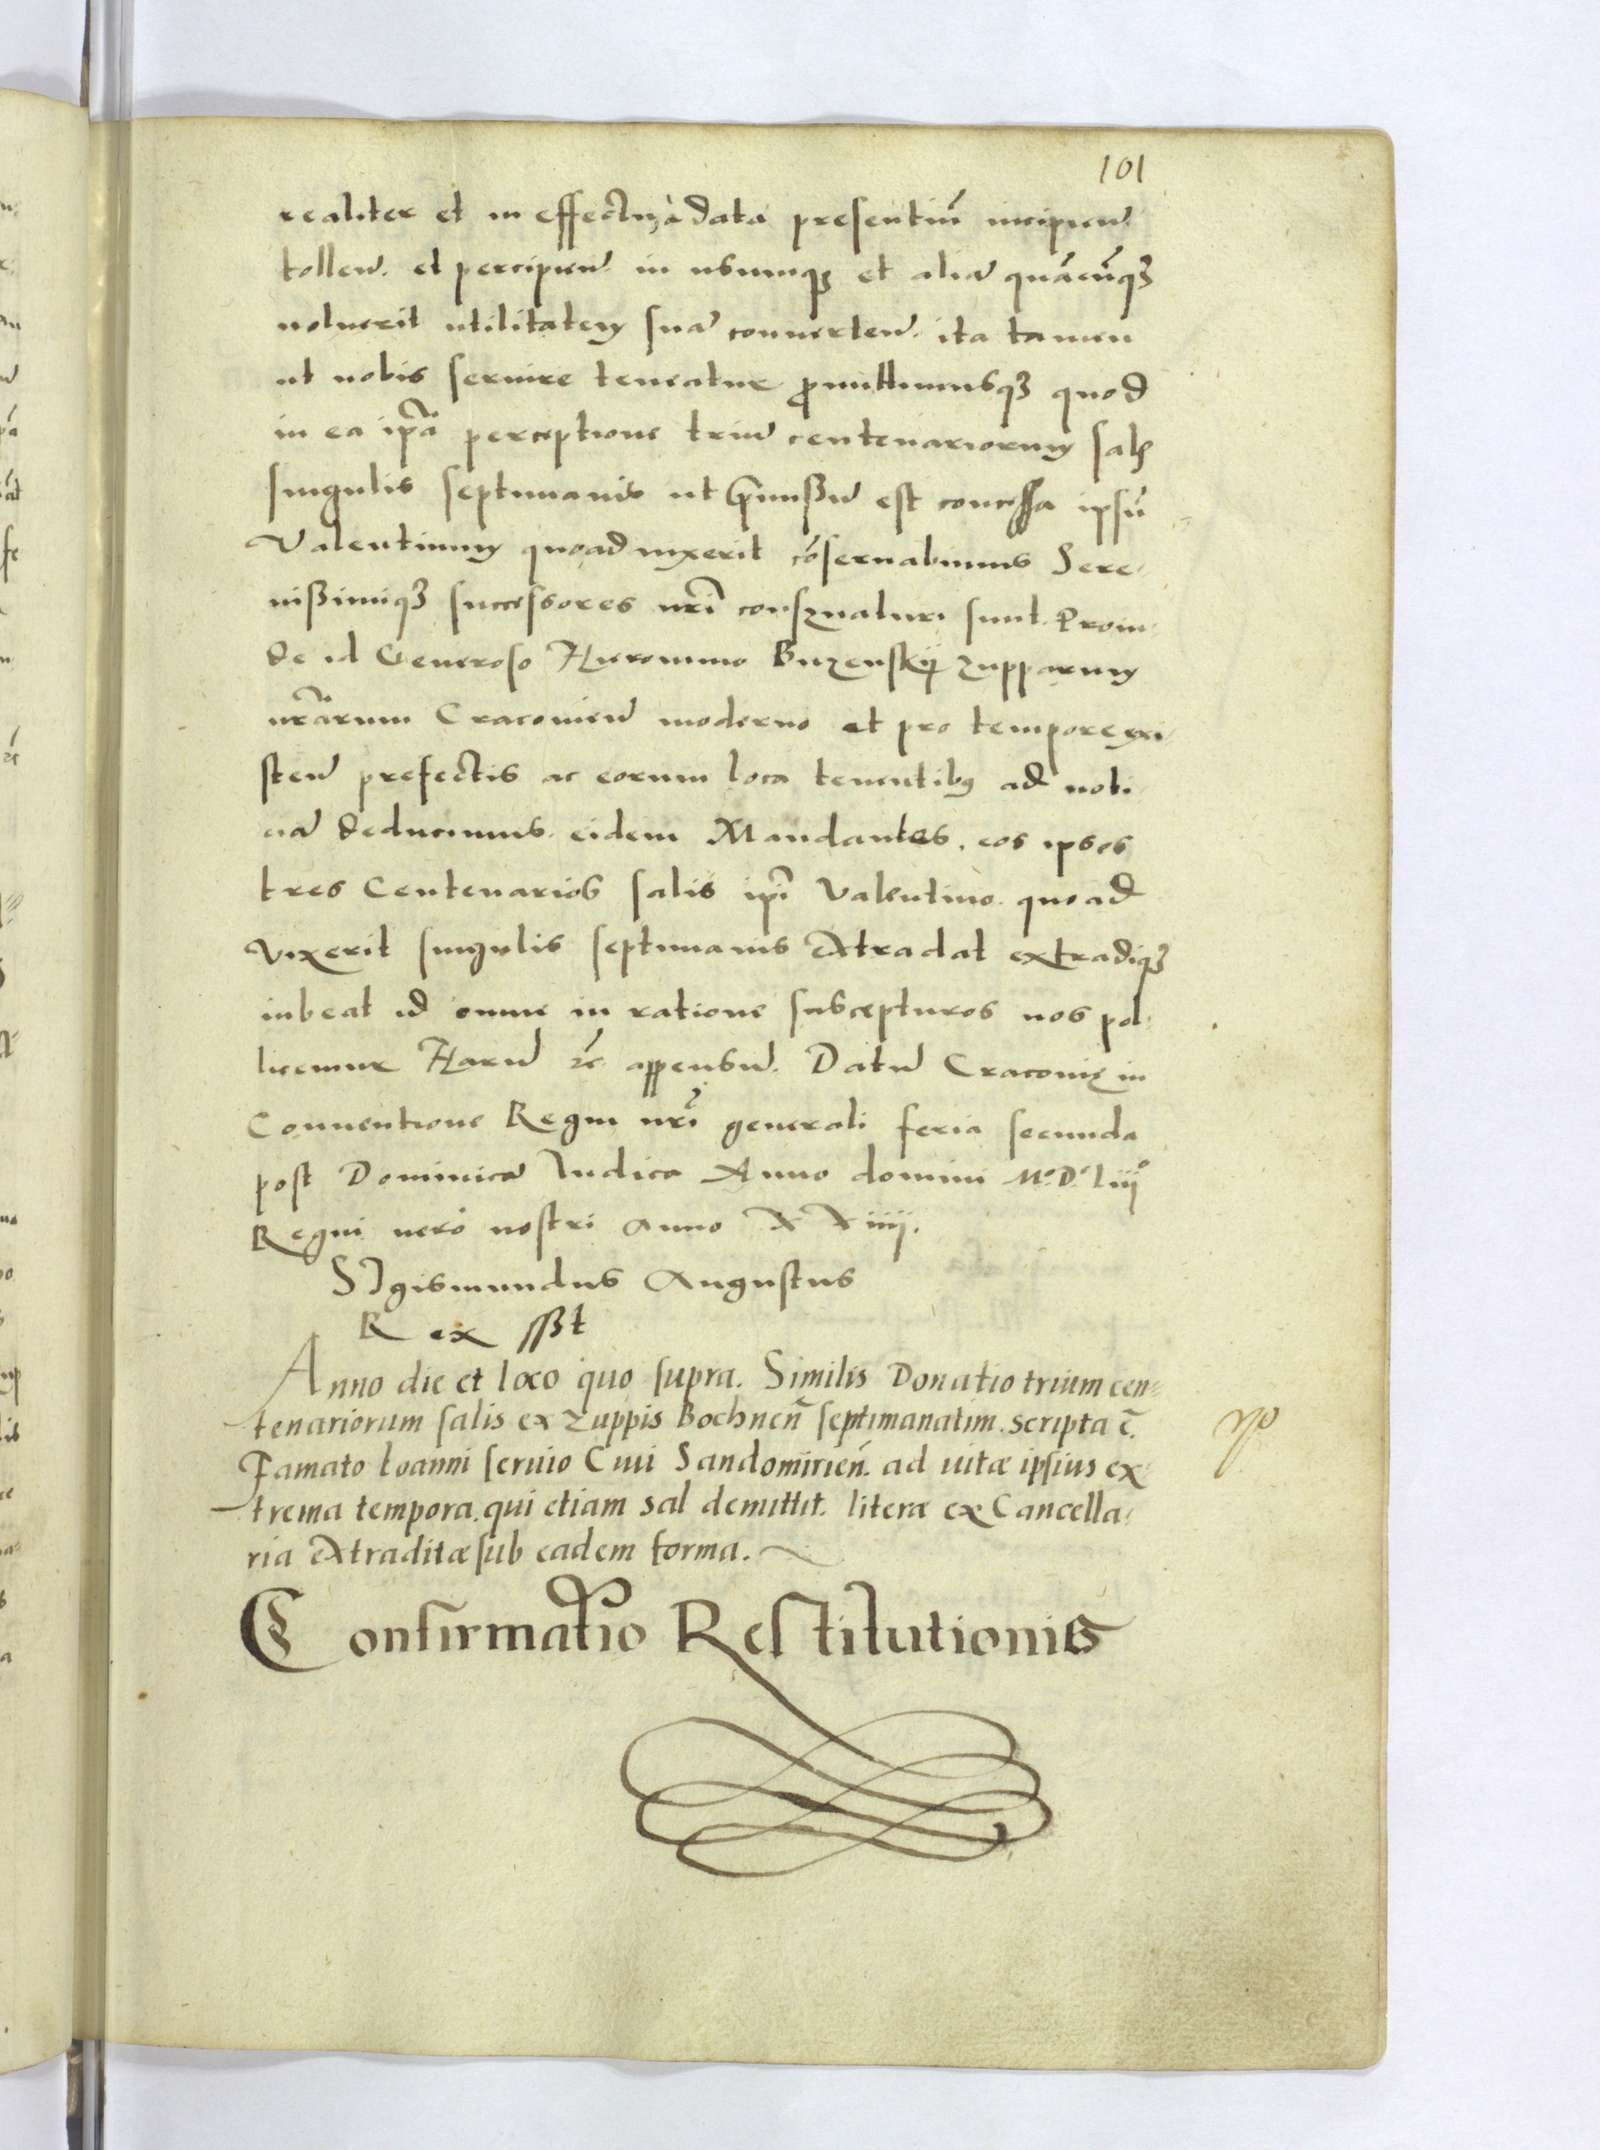 101
realiter et in effectu à data presentiũ incipieñ.
tolleñ. et percipieñ. in usumqʒ et aliã quãcũqʒ
voluerit utilitatem suã converteñ. ita tamen
ut nobis servire teneatur promittimusqʒ quod
in ea ip̃a perceptione triũ centenariorum salis
singulis septimanis ut premissũ est concessa ipsũ
Valentinum quoad vixerit cõservabimus Sere-
nissimiqʒ successores nr̃i conservaturi sunt. Proin-
de id Generoso Hieronimo Buzenskij zupparum
nr̃arum Cracovieñ moderno et pro tempore exi-
steñ prefectis ac eorum loca tenentibus ad noti-
ciã deducimus. eidem Mandantes. eos ipsos
tres Centenarios salis ip̃i Valentino quoad
vixerit singulis septimanis extradat extradiqʒ
iubeat id omne in ratione suscepturos nos pol-
licemur Harũ zc̃ appensũ. Datũ Cracovię in
Conventione Regni nr̃i generali feria secunda
post Dominicã Iudica Anno domini Mº. Dº. Liiijº
Regni verò nostri anno XXiiij.
SIgismundus Augustus
Rex sst
Anno die et loco quo supra. Similis Donatio trium cen-
tenariorum salis ex Zuppis Bochneñ septimanatim. scripta ẽ.
Famato Ioanni servio Civi Sandomirieñ. ad vitæ ipsius ex-
trema tempora. qui etiam sal demittit. literæ ex Cancella-
ria extraditæ sub eadem forma.
Confirmatio Restitutionis